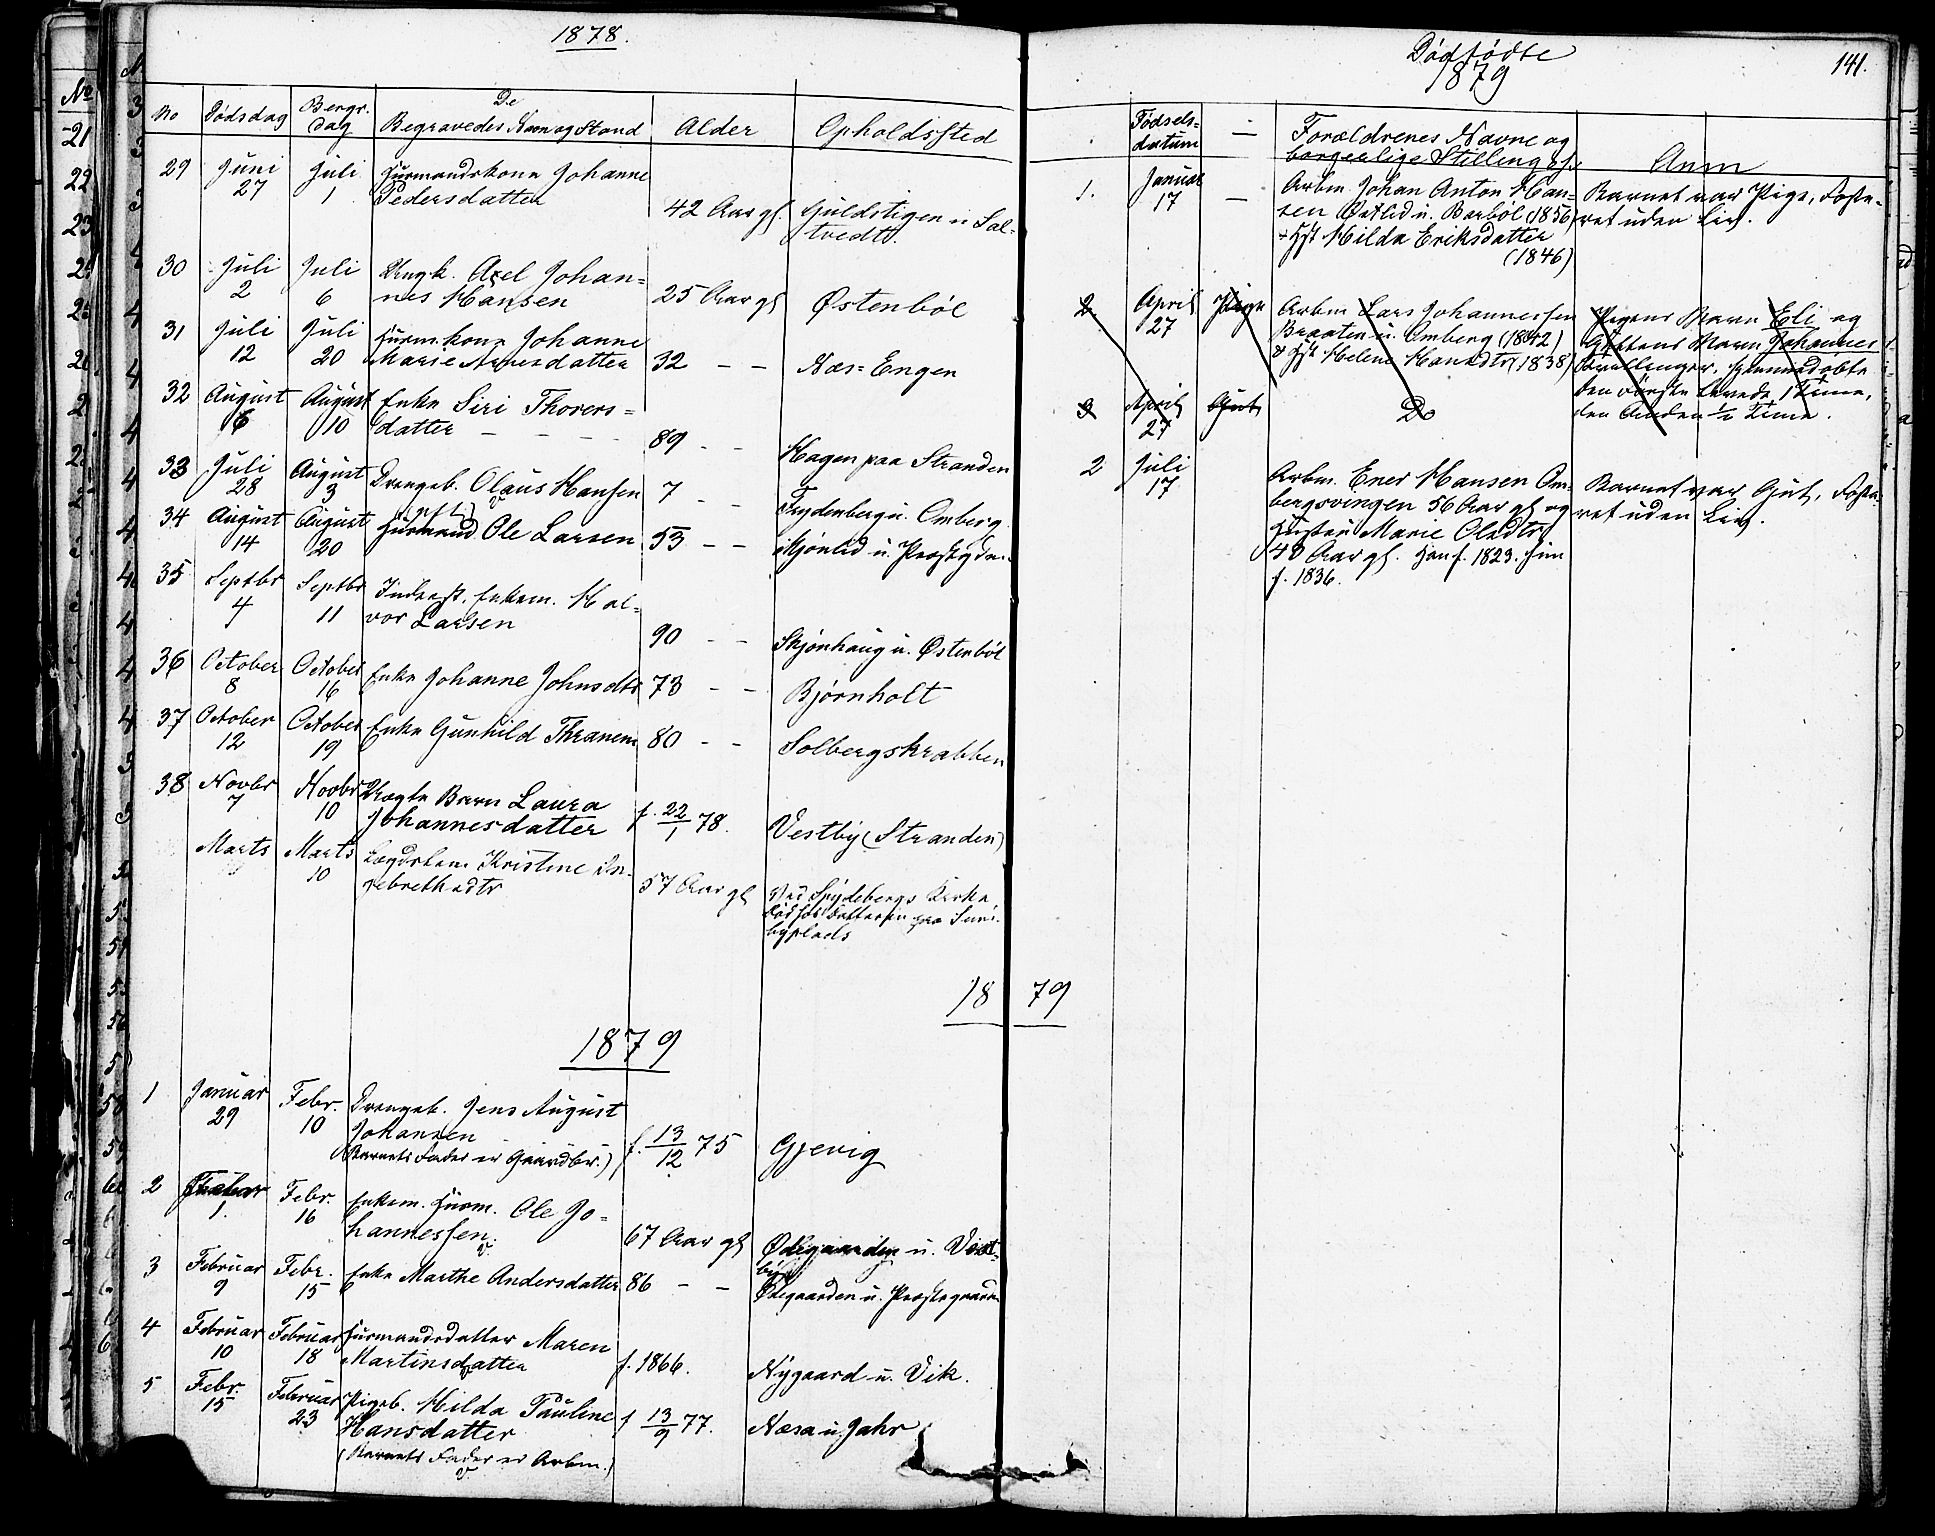 1878.
No Dødsdag Begr. dag De Begravedes Navn og Stand Alder Opholdssted
29 Juni 27 Juli 1 Husmandskone Johanne
Pedersdatter 42 Aar gl. Guldstigen u Sol-
tvedt.
30 Juli 2 Juli 6 Ungk. Axel Johan=
nes Hansen 25 Aar gl Østenbøl
31 Juli 12 Juli 20 Husm.kone Johanne
Marie Arnesdatter 32 - - Næs=Engen
32 August 6 August 10 Enke Siri Thorers=
datter - - - - 89 - - Hagen paa Stranden
33 Juli 28 August 3 Drengeb. Olaus Hansen 7 - Frydenberg u. Omberg
34 August 14 August 20 Husmand Ole Larsen 53 - - Skjønlid u. Prestgdn.
35 Septbr 4 Septbr 11 Inderst, Enkem. Hal=
vor Larsen 90 - - Skjønhaug u. Østenbøl
36 October 8 October 16 Enke Johanne Johnsdtr 73 - - Bjørnholt
37 October 12 October 19 Enke Gunhild Thranem 80 - - Solbergskrabben
38 Novbr 7 Novbr 10 Uægte Barn Laura
Johannesdatter f. 22/1 78. Vestby (Stranden)
Marts Marts 10 Lægdslem Kristine En-
gebrethsdtr 57 Aar gl Ved Spydebergs Kirke,
byplads
18 79
1879
1 Januar 29 Febr. 10 Drengeb. Jens August
Johansen
(Barnets Fader er Gaardbr.) f. 13/12 75 Gjevig
2 1. Febr. 16 Enkem. Husm. Ole Jo=
hannessen. 67 Aar gl Ødegaarden u. Vest-
by
3 Februar 9 Febr. 15 Enke Marthe Andersdatter 86 - - Ødegaarden u. Prestegaarden
4 Februar 10 Februar 18 Husmandsdatter Maren
Martinsdatter f. 1866. Nygaard u. Vik.
5 Febr. 15 Februar 23 Pigeb. Hilda Pauline
Hansdatter f 13/9 77. Næsa u. Jahr
(Barnets Fader er Arbm.)
Dødfødte
1879
141.
Fødsels=
datum - Forældrenes Navne og
borgerlige Stilling Anm
1. Januar 17 - Arbm. Johan Anton Han=
sen Østlid u. Barbøl (1856)
+ Hst Hilda Eriksdatter
(1846)
Barnet var Pige, Foste-
ret uden Liv.
2. April 27 Pige Arbm Lars Johannessen
Braaten u. Omberg (1842)
& Hst Helene Hansdtr (1838)
Pigens Navn Eli og
Guttens Navn Johannes
Tvillinger, hjemmedøbte
den Første levede 1 Time,
den Anden 1/2 Time.
3 April 27 Gut Do
2 Juli 17 Arbm. Ener Hansen Om-
bergsvingen 56 Aar gl og
Hustru Marie Olsdtr
43 Aar gl. Han f. 1823. Hun
f. 1836.
Barnet var Gut, Foste-
ret uden Liv.